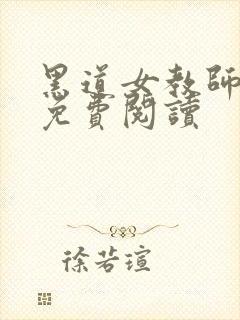 黑道女教師
免費閱讀
徐若瑄